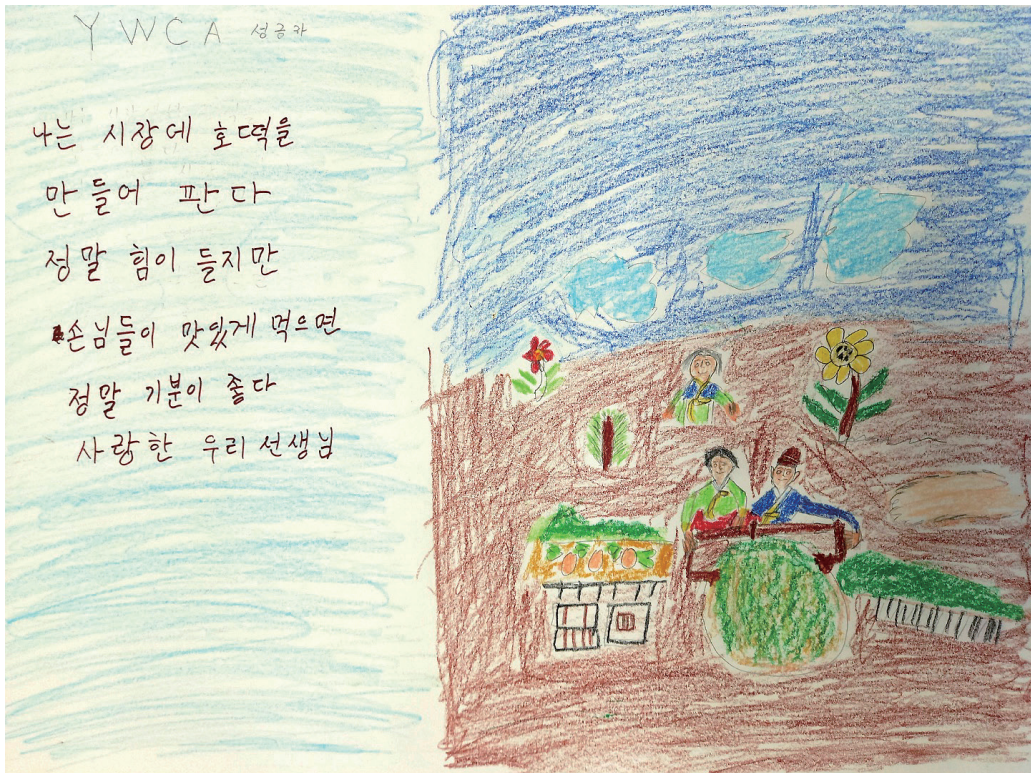 YWCA 성금자
나는 시장에 호떡을
만들어 판다
정말 힘이 들지만
손님들이 맛있게 먹으면
정말 기분이 좋다
사랑한 우리 선생님